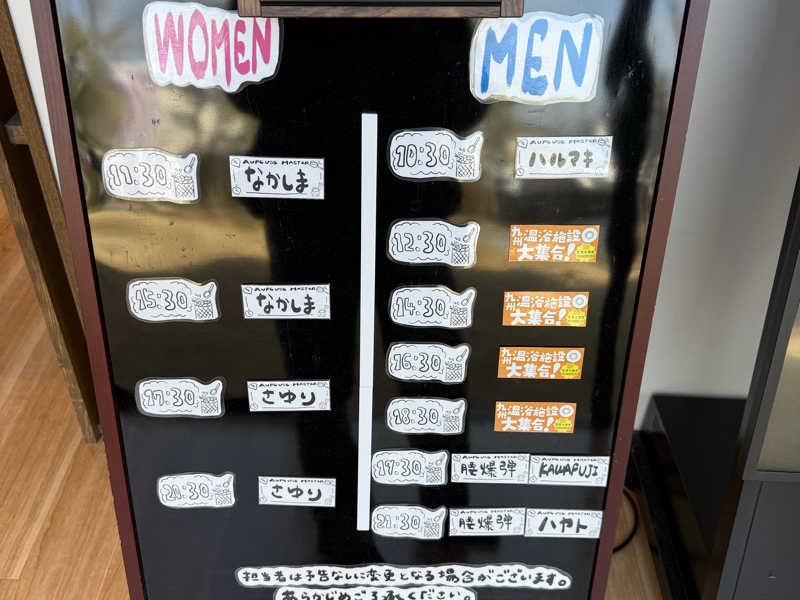 WOMEN
11:30
AUFGUSS MASTER
なかしま
15:30
AUFGUSS MASTER
なかしま
17:30
AUFGUSS MASTER
さゆり
20:30
AUFGUSS MASTER
さゆり
MEN
10:30
AUFGUSS MASTER
ハルマキ
12:30
九州温浴施設
大集合!
14:30
九州温浴施設
大集合!
16:30
九州温浴施設
大集合!
18:30
九州温浴施設
大集合!
19:30
AUFGUSS MASTER
腰爆弾
AUFGUSS MASTER
KAWAFUJI
21:30
AUFGUSS MASTER
腰爆弾
AUFGUSS MASTER
ハヤト
担当者は予告なしに変更となる場合がございます。
あらかじめご了承ください。